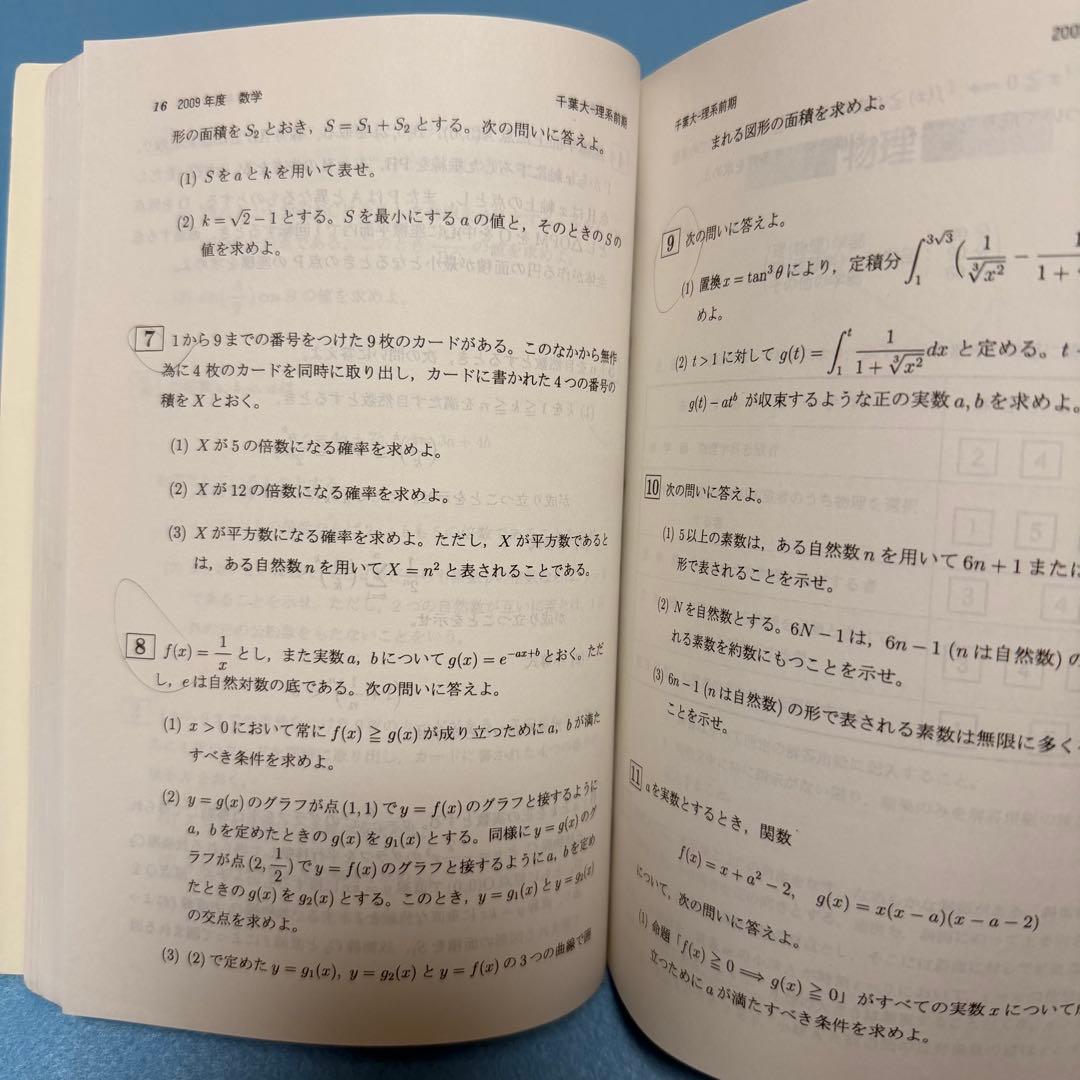 16 2009年度 数学
千葉大-理系前期
形の面積をS₂とおき，S=S₁+S₂とする。次の問いに答えよ。
(1) Sをaとkを用いて表せ。
(2) k=√2−1とする。Sを最小にするaの値と，そのときのSの
値を求めよ。
7 1から9までの番号をつけた9枚のカードがある。このなかから無作
為に4枚のカードを同時に取り出し，カードに書かれた4つの番号の
積をXとおく。
(1) Xが5の倍数になる確率を求めよ。
(2) Xが12の倍数になる確率を求めよ。
(3) Xが平方数になる確率を求めよ。ただし，Xが平方数であると
は，ある自然数nを用いてX=n²と表されることである。
8 f(x)=1/xとし，また実数a，bについてg(x)=e^{−ax+b}とおく。ただ
し，eは自然対数の底である。次の問いに答えよ。
(1) x>0において常にf(x)≧g(x)が成り立つためにa，bが満た
すべき条件を求めよ。
(2) y=g(x)のグラフが点(1,1)でy=f(x)のグラフと接するように
a，bを定めたときのg(x)をg₁(x)とする。同様にy=g(x)のグ
ラフが点(2,1/2)でy=f(x)のグラフと接するようにa，bを定め
たときのg(x)をg₂(x)とする。このとき，y=g₁(x)とy=g₂(x)
の交点を求めよ。
(3) (2)で定めたy=g₁(x)，y=g₂(x)とy=f(x)の3つの曲線で囲
千葉大-理系前期
まれる図形の面積を求めよ。
9 次の問いに答えよ。
(1) 置換x=tan³θにより，定積分∫₁^{3√3}(1/∛x² −
めよ。
(2) t>1に対してg(t)=∫₁^t 1/(1+∛x²)dxと定める。
g(t)−at^bが収束するような正の実数a,bを求めよ。
10 次の問いに答えよ。
(1) 5以上の素数は，ある自然数nを用いて6n+1または
形で表されることを示せ。
(2) Nを自然数とする。6N−1は，6n−1(nは自然数)の
れる素数を約数にもつことを示せ。
(3) 6n−1(nは自然数)の形で表される素数は無限に多く
ことを示せ。
11 aを実数とするとき，関数
f(x)=x+a²−2， g(x)=x(x−a)(x−a−2)
について，次の問いに答えよ。
(1) 命題「f(x)≧0⟹g(x)≧0」がすべての実数xについて
立つためにaが満たすべき条件を求めよ。